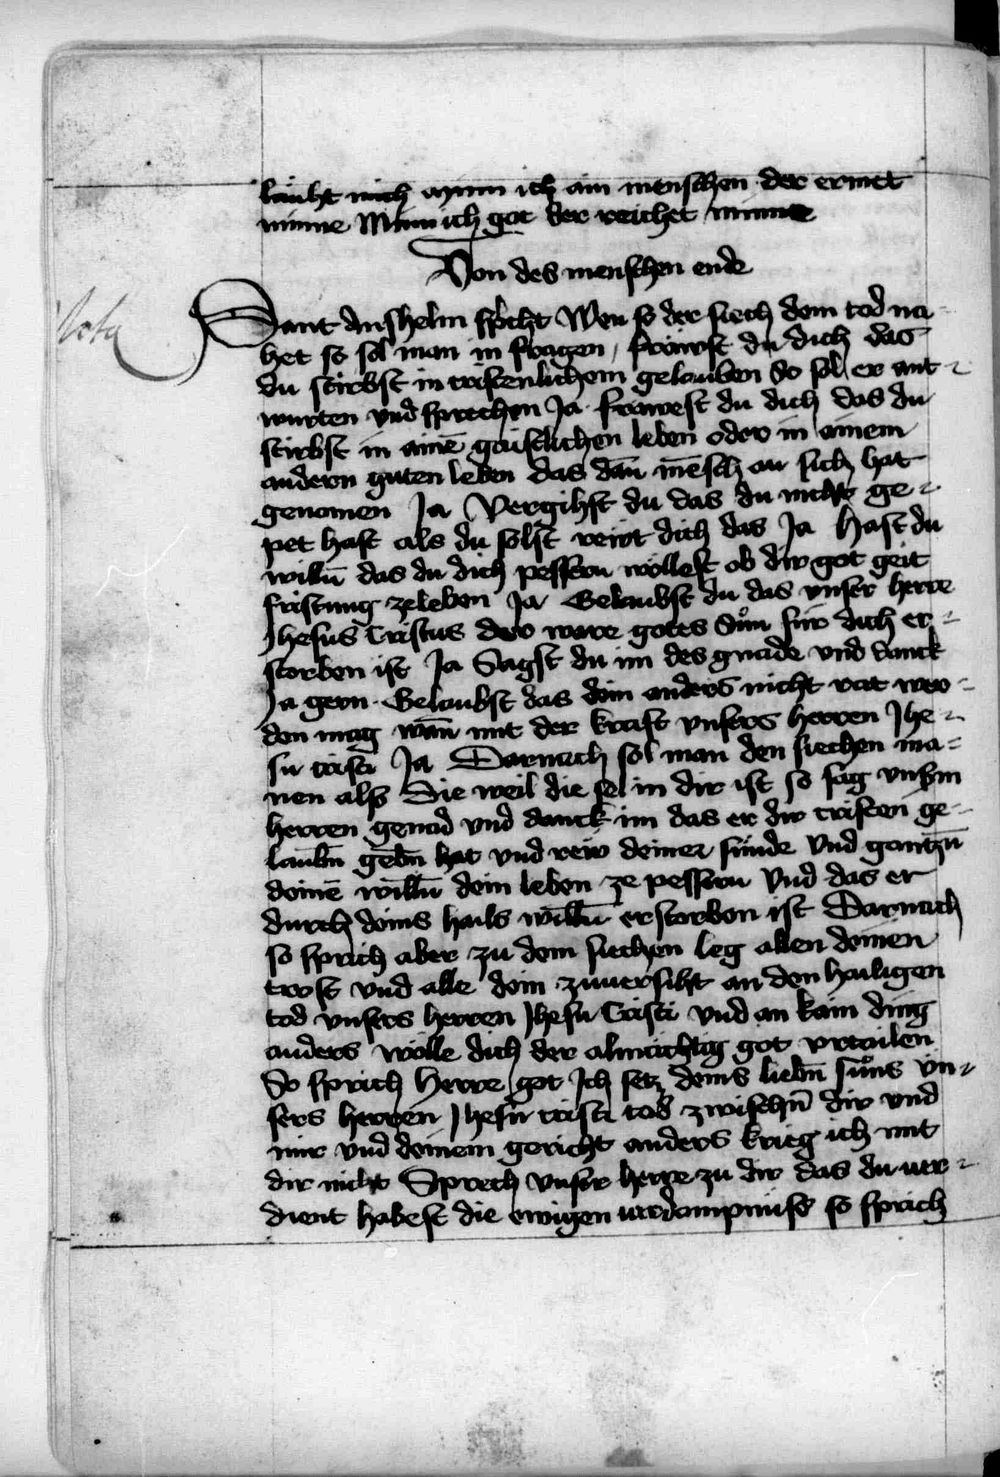 läuht mich mynn ich ain menschen der ermet
minne Minn ich got der reichet minne
Von des menschen ende
Nota
Sant Anshelm spricht Wen so der siech dem tod na-
het so sol man in fragen, fräwst du dich das
du stirbst in cristenlichem gelauben So sol er ant-
wurten vnd sprechen Ja. fräwest du dich das du
stirbst in ainē gaistlichen leben oder in ainem
andern guten leben das dān mēsch an sich hat
genomen Ja Vergihst du das du nicht ge-
pet hast als du solst reiwt dich das Ja Hast du
willn̄ das du dich pessern wöllest ob dir got geit
fristung zeleben Ja Gelaubst du das vnser herre
Jhesus Cristus der ware gotes Sůn für dich er-
storben ist Ja Sagst du im des gnade vnd danck
Ja gern. Gelaubst das dein anders nicht rat wer-
den mag wān mit der kraft vnsers herren Jhe-
su cristi Ja Darnach sol man den siechen ma-
nen alss Die weil die sel in dir ist so sag vnsm
herren genad vnd danck im das er dir cristen ge-
laubn̄ gebn̄ hat vnd rew deiner sünde Vnd gantzn̄
deinē willn̄ dein leben ze pessern Vnd das er
durch deins hails willn̄ erstorben ist Darnach
so sprich aber zu dem siechen leg allen deinen
trost vnd alle dein zuuersiht an den hailigen
tod vnsers herren Jhesu Cristi vnd an kain ding
anders wölle dich der almächtig got vrtailen
So sprich Herre got Ich setz deins liebn̄ sůns vn-
sers herren Jhesu cristi tod zwischn̄ dir vnd
mir vnd deinem gericht anders krieg ich mit
dir nicht Sprech vnser herre zu dir das du uer-
dient habest die ewigen uerdampnuss so sprich